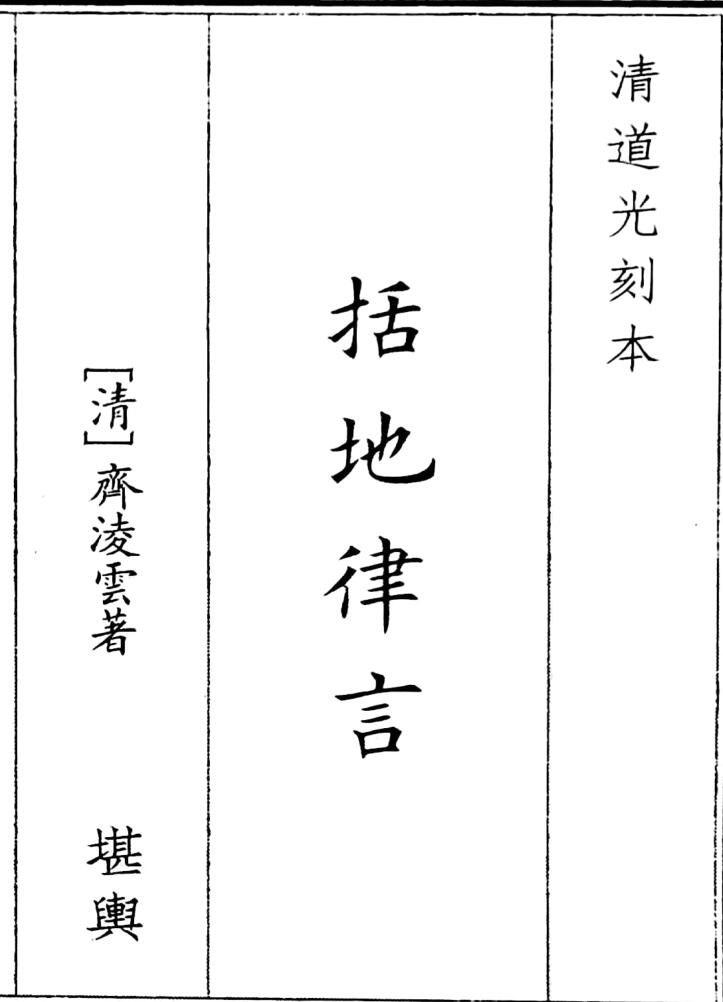 清道光刻本
括地律言
[清]齊淩雲著
堪輿